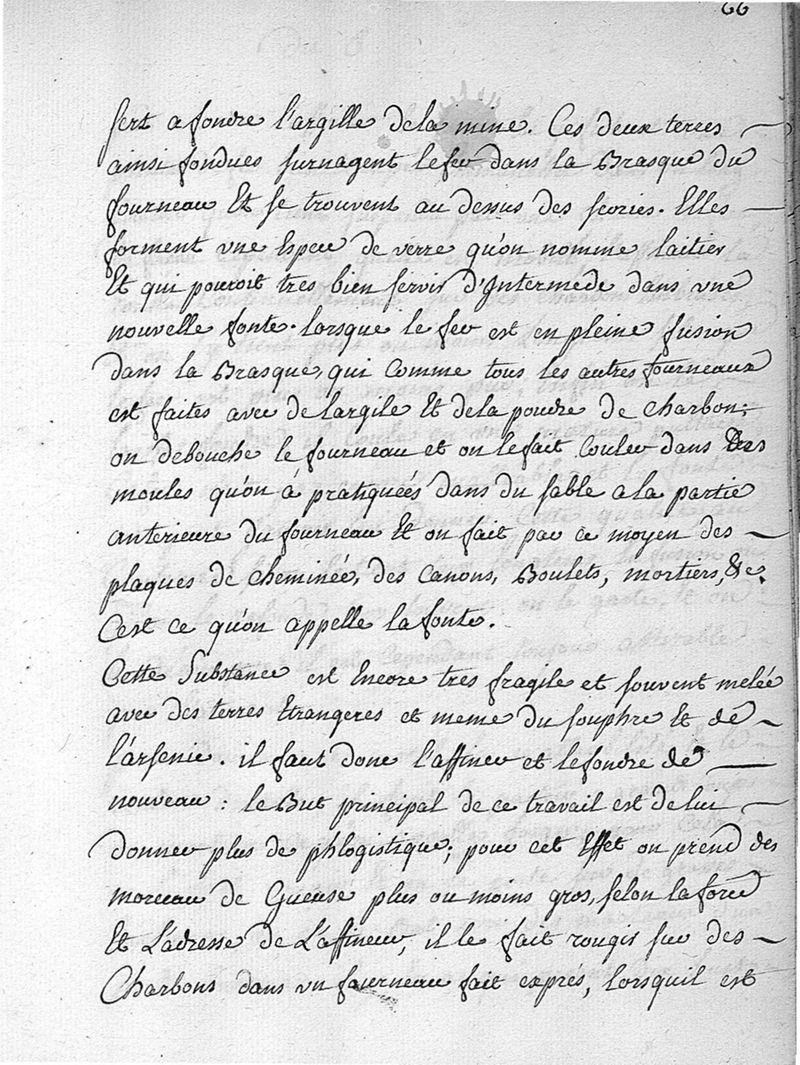 66
sert a fondre l'argille de la mine. Ces deux terres
ainsi fondues surnagent le fer dans la Brasque du
fourneau Et se trouvent au dessus des scories. Elles
forment vne Espece de verre qu'on nomme laitier
Et qui pouroit tres bien servir d'Intermede dans vne
nouvelle fonte. lorsque le fer est en pleine fusion
dans la Brasque, qui Comme tous les autres fourneaux
est faites avec de largile Et de la poudre de Charbon;
on debouche le fourneau et on le fait Couler dans des
moules qu'on à pratiqueés dans du sable a la partie
anterieure du fourneau Et on fait par ce moyen des
plaques de Cheminée, des Canons, Boulets, mortiers, &c.
C'est ce qu'on appelle la fonte.
Cette Substance est Encore tres fragile et souvent melée
avec des terres Etrangeres et meme du souphre Et de
l'arsenic. il faut donc l'affiner et le fondre de
nouveau : le But principal de ce travail est de lui
donner plus de phlogistique; pour cet Effet on prend des
morceau de Gueuse plus ou moins gros, selon la force
Et L'adresse de L'affineur, il le fait rougir sur des
Charbons dans vn fourneau fait exprés, lorsquil est